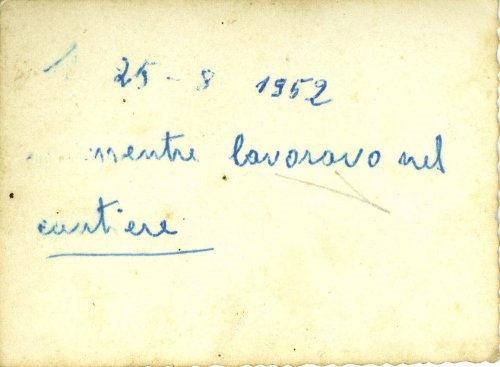 25-8 1952
mentre lavoravo nel
cantiere